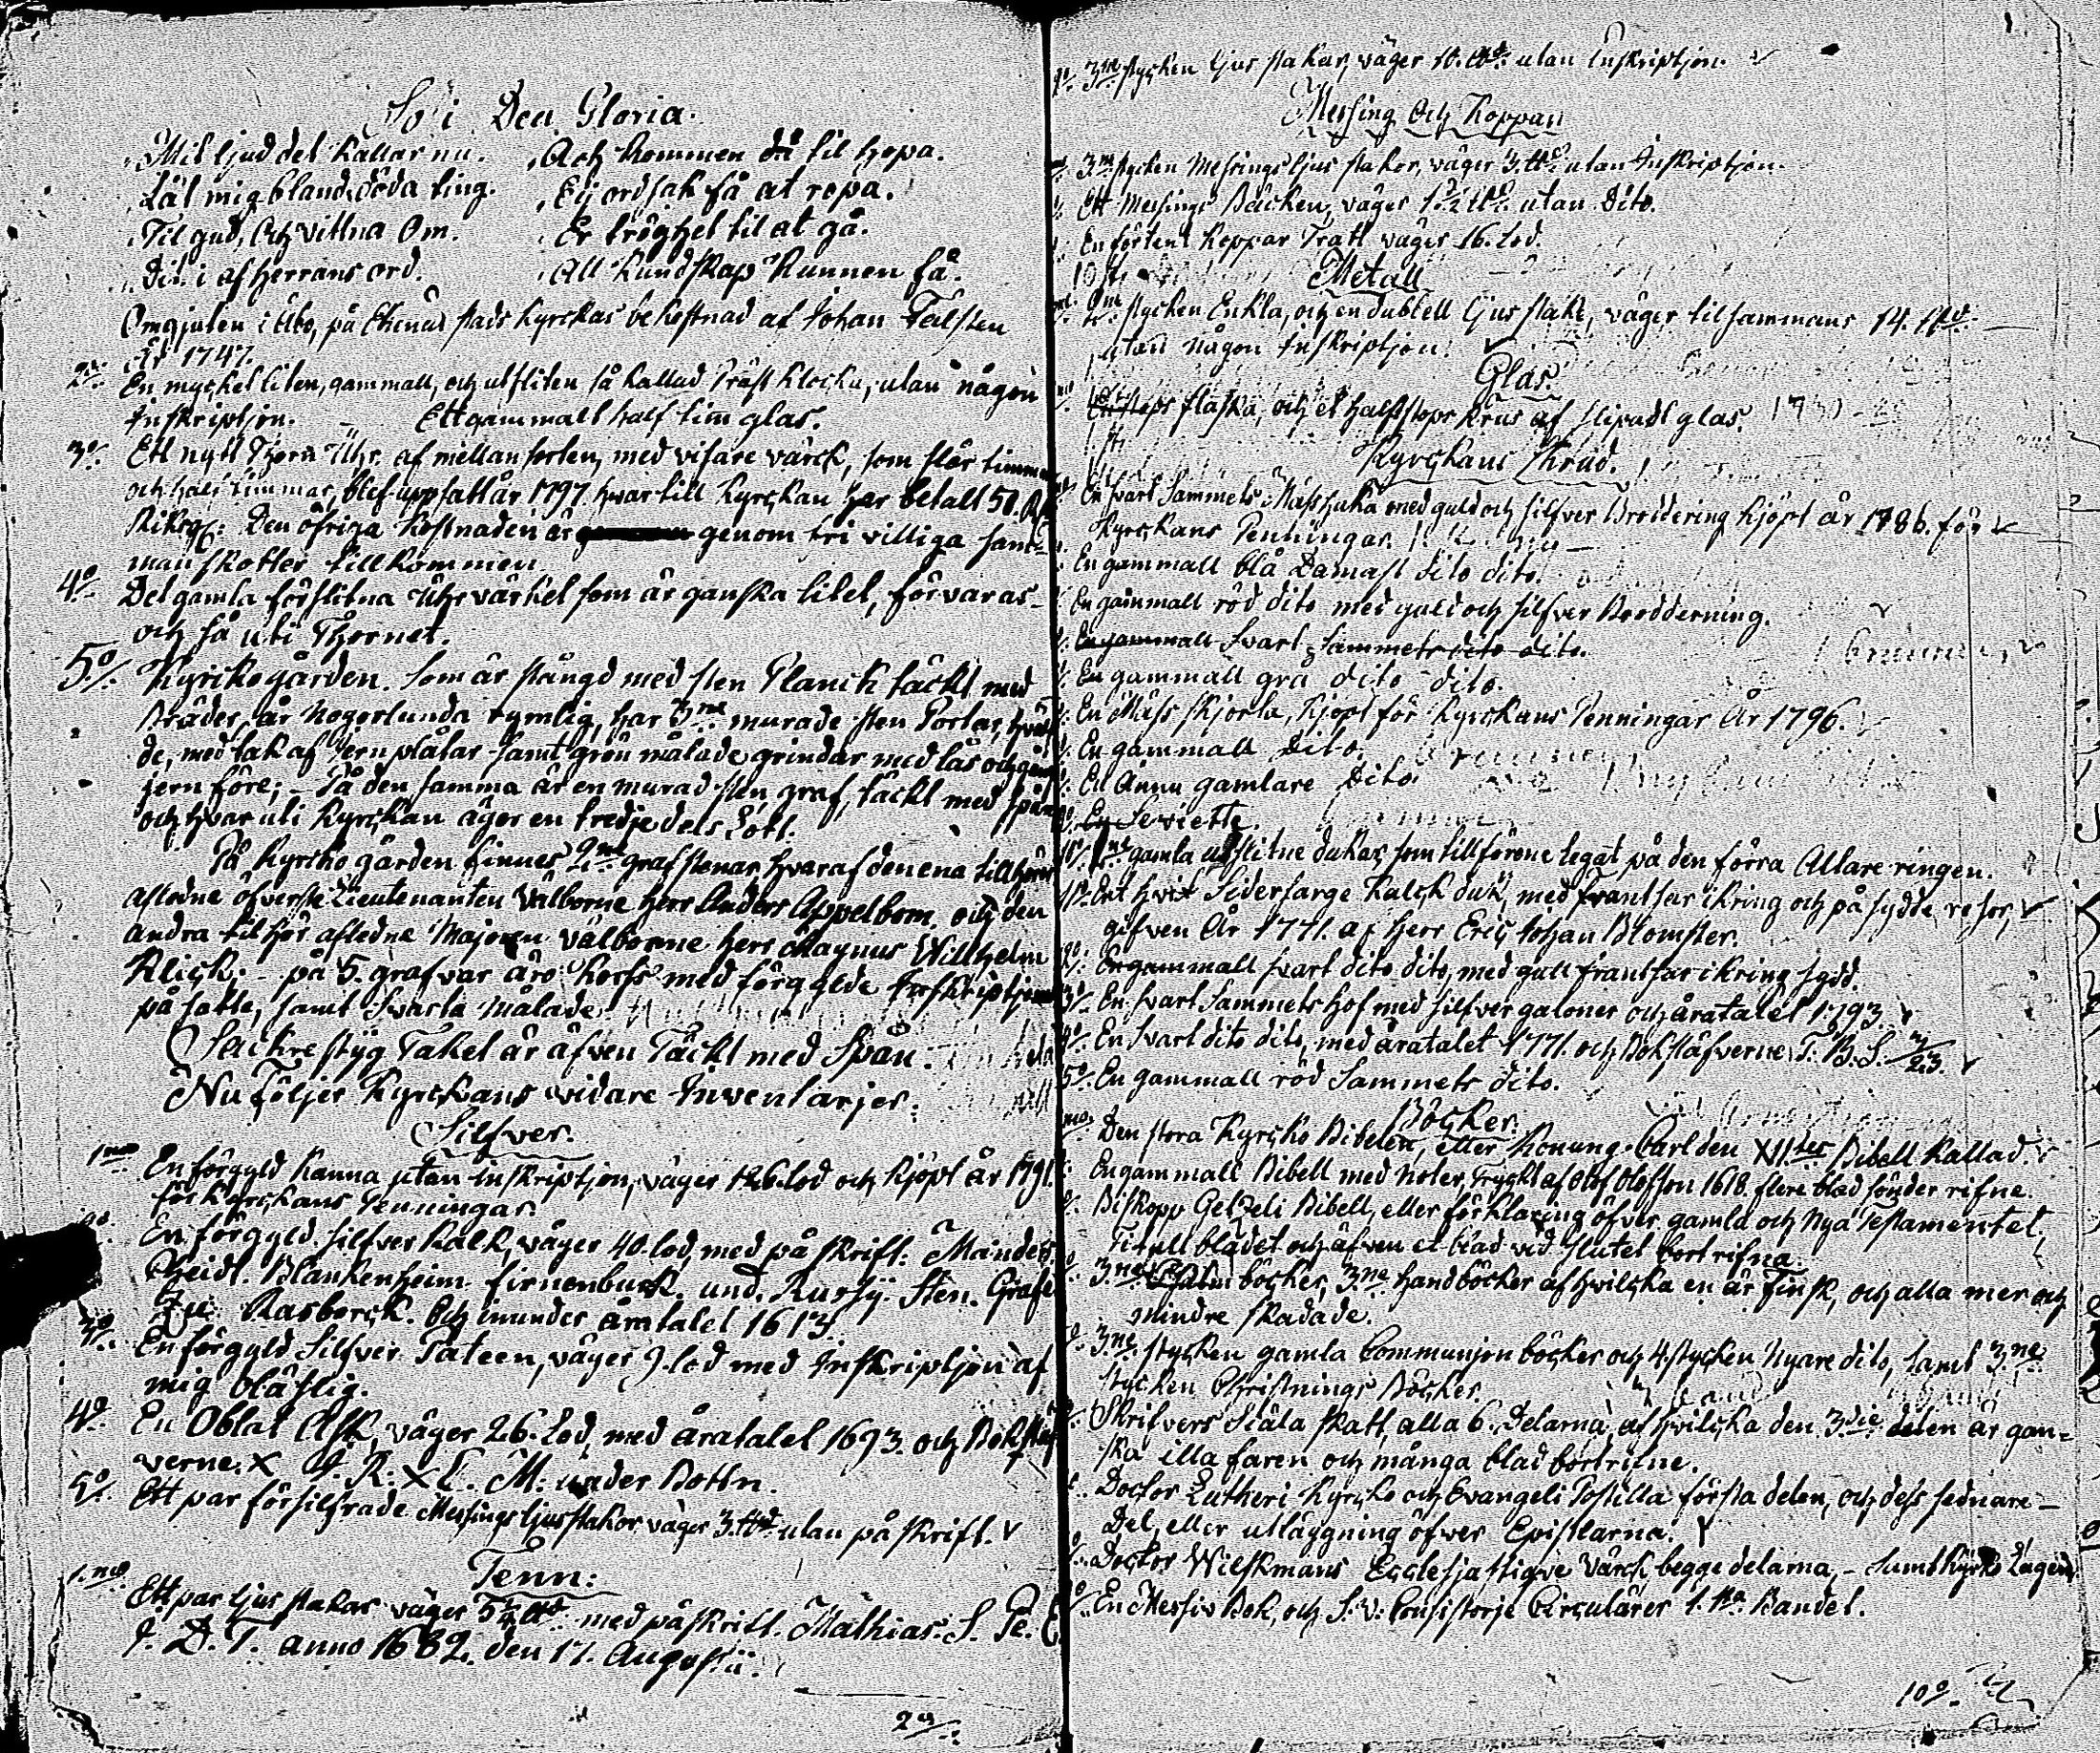 Soli Deo Gloria.
Mit ljud det kallar nu.
Lät mig bland döda ting.
Til gud, Och vittna Om.
Dit i af herrans ord.
Och kommen då til hopa.
Ej ordsak få at ropa.
Er tröghet til at gå.
All kundskap kunnen få.
Omgjuten i Åbo, på Ekenäs stads kyrckas bekostnad af Johan Fahlsten
År 1747.
2o. En mycket liten, gammall, och utsliten så kallad Präst klocka, utan någon
Inskriptjon. Ett gammalt half tim glas.
3o. Ett nytt Thorn Uhr. af mellan sorten, med visare värck, som slår timmar
och half timmar, blef uppsatt år 1797. hvar till kyrckan har betalt 50. R
Riksg: Den öfriga kostnaden är genom fri villiga sam=
manskotter tillkommen.
4o. Det gamla förslitna Uhrvärket som är ganska litet, förvaras
och så uti Thornet.
5o. Kyrkogården. Som är stängd med sten Planck täckt med
Bräder, är Nogorlunda rymlig, har 3ne murade sten Portar,
de, med tak af Jern plåtar samt grön målade grindar med lås och gång
jern före; På den samma är en murad sten graf, täckt med spån
och hvar uti kyrckan äger en tredjedels Lott.
På kyrcko gården finnes 2ne graf stenar, hvaraf den ena tillhörer
afledne öfverste Lieutenanten Välborne herr Anders Appelbom, och den
andra tilhör afledne Majoren välborne herr Magnus Willhelm
Klick. på 5. grafvar äro kors med förgylde Inskriptjoner
på satte, samt Svarta målade.
Sackrestyg Taket är äfven Täckt med Spån.
Nu Följer Kyrckans vidare Inventarjer.
Silfver.
1mo En förgyld kanna utan Inskriptjon, väger 126 lod och kjöpt år 1791.
för kyrckans Penningar.
2o. En förgyld silfver kalk, väger 40. lod, med på skrift: Mainder
Scheidt. Blankenheim. firnenburk. und. Russij. Sten. Grafe
Zu Rasborck. Och inunder årtalet 1613.
3o. En förgyld Silfver Pateen, väger 9. lod med Inskriptjon af
mig oläslig.
4o. En Oblat Ask, väger 26. Lod, med åratalet 1693. och Bokstäf
verne. X J. R: X E. M: under Bottn.
5o. Ett par försilfrade Messings ljusstakar väger 3. ttd utan på skrift. V
Tenn:
1mo Ett par ljus stakar väger 5½ ttd. med påskrift. Mathias. S. Pe. C.
J. D. T. anno 1682. den 17. Augusti.
2o.
2o. 3ne stycken ljus stakar, väger 10. ttd. utan Inskriptjon.
Messing Och Koppar
3ne stycken Messings ljus stakor, väger 3. ttd utan Inskriptjon.
Ett Messings Bäcken, väger 1½ ttd. utan Dito.
En förtent koppar Tratt väger 16. Lod.
Metall
2ne stycken Enkla, och en dubbell ljus stake, väger tilsammans 14. ttd.
utan någon Inskriptjon.
Glas.
stops flaska, och et half stops krus af slipadt glas.
Kyrckans Skrud.
En svart Sammets Mässhaka med guld och silfver Broddering kjöpt år 1786. för
kyrckans Penningar.
En gammall blå Damast dito dito.
En gammall röd dito med guld och silfver Brodderning.
En gammall Svart Sammets dito dito.
En gammall grå dito dito.
En Mäss skjorta, kjöpt för kyrckans Penningar År 1796.
En gammall Dito.
En Ännu gamlare Dito.
En Serviette.
2ne gamla utslitne dukar som tillförene legat på den förra Altare ringen.
Ett hvit Sidersarge Kalck duk, med frantsar ikring och på sydde rosor,
gifven År 1771. af Herr Eric Johan Blomster.
En gammall svart dito dito, med gull frantsar ikring sydd.
En svart Sammets hof med silfver galoner och åratalet 1793.
En Svart dito dito, med åratalet 1771. och Bokstäfverne T. B. S. 3/23.
5o. En gammall röd Sammets dito.
Böcker.
Den stora Kyrcko Bibelen, eller Konung Carl den XII:tes Bibell kallad.
En gammall Bibell med noter, Tryckt af Olof Olofson 1618. flere blad sönder rifne.
Biskopp Gezeli Bibell, eller förklaring öfver gamla och Nya Testamentet.
Titull bladet och äfven et blad vid slutet bortrifna.
3ne Psalm böcker, 3ne handböcker af hvilcka en är Finsk, och alla mer och
mindre skadade.
3ne stycken gamla Communjon böcker och 4 stycken Nyare dito, samt 3ne
stycken Christnings Böcker.
Skrifvers Siäla skatt, alla 6. Delarna, af hvilcka den 3die delen är gan=
ska illa faren och många blad bortrifne.
Doctor Lutheri kyrcko och Evangeli Postilla första delen, och dess sednare
Del, eller utläggning öfver Epistlarna.
Doctor Wilskmans Ecclesjastiqve Värck begge delarna, samt Kyrko Lagen
En Messiv Bok, och S. v. Consistorje Circulärer 1. sta Bandet.
10o.